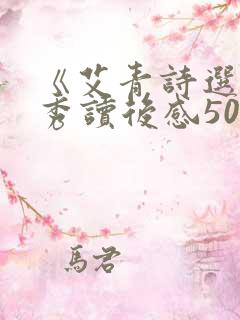 《艾青詩選
秀讀後感50
馬君